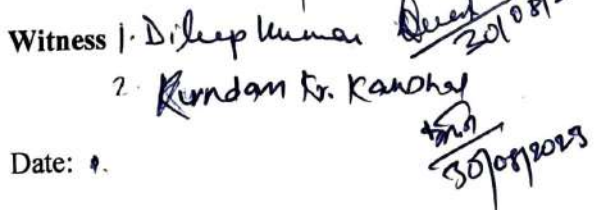 Witness 1. Dileep Kumar
30/08/
2. Kundan Kr. Kaushal
30/08/2023
Date: